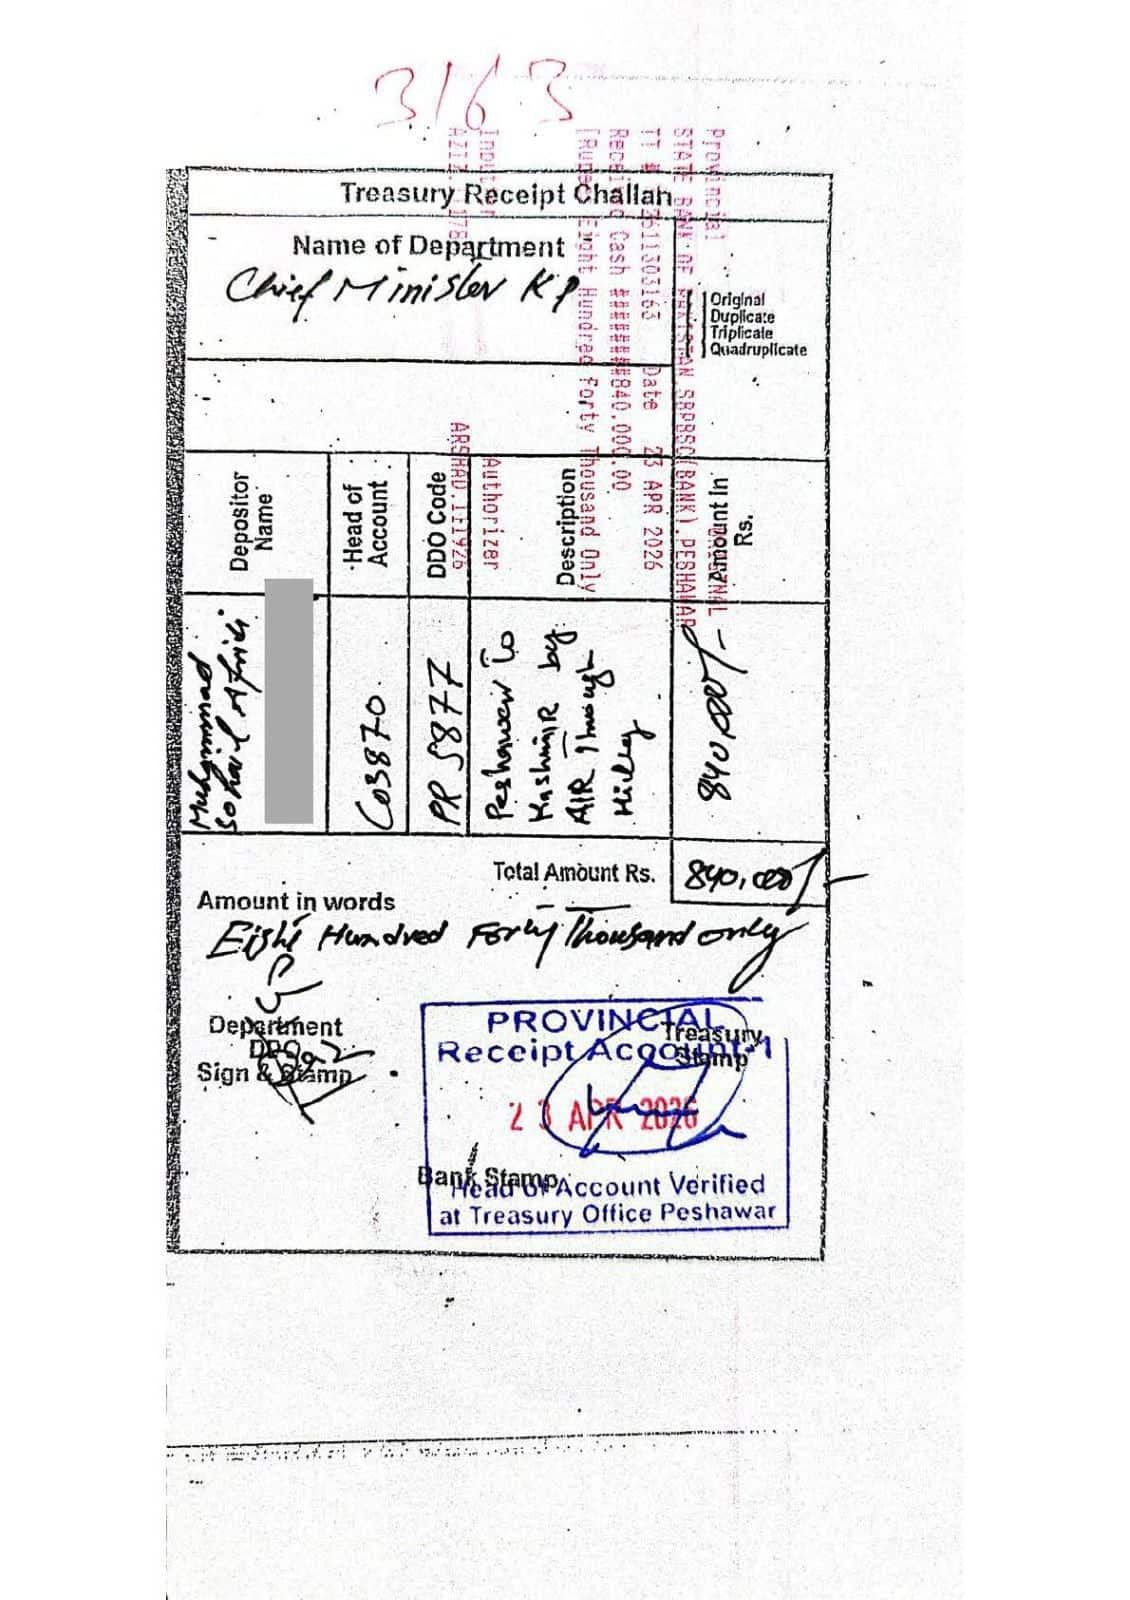 3163
Provincial ORIGINAL
STATE BANK OF PAKISTAN SBPBSC(BANK), PESHAWAR
Date 23 APR 2026
Receipt Cash #######840,000.00
[Rupees Eight Hundred Forty Thousand Only
Inputter Authorizer
Treasury Receipt Challah
Name of Department
Chief Minister KP
Original
Duplicate
Triplicate
Quadruplicate
Depositor Name
Head of Account
DDO Code
Description
Amount In Rs.
Muhammad Sohail Afridi
C03870
PR 5877
Peshawer to
Kashmir by
AIR Through
840,000/-
Total Amount Rs. 840,000/-
Amount in words
Eight Hundred Forty Thousand only
Department
DDO
Sign & Stamp
Treasury
Stamp
Bank Stamp
PROVINCIAL
Receipt Account-1
23 APR 2026
Head of Account Verified
at Treasury Office Peshawar